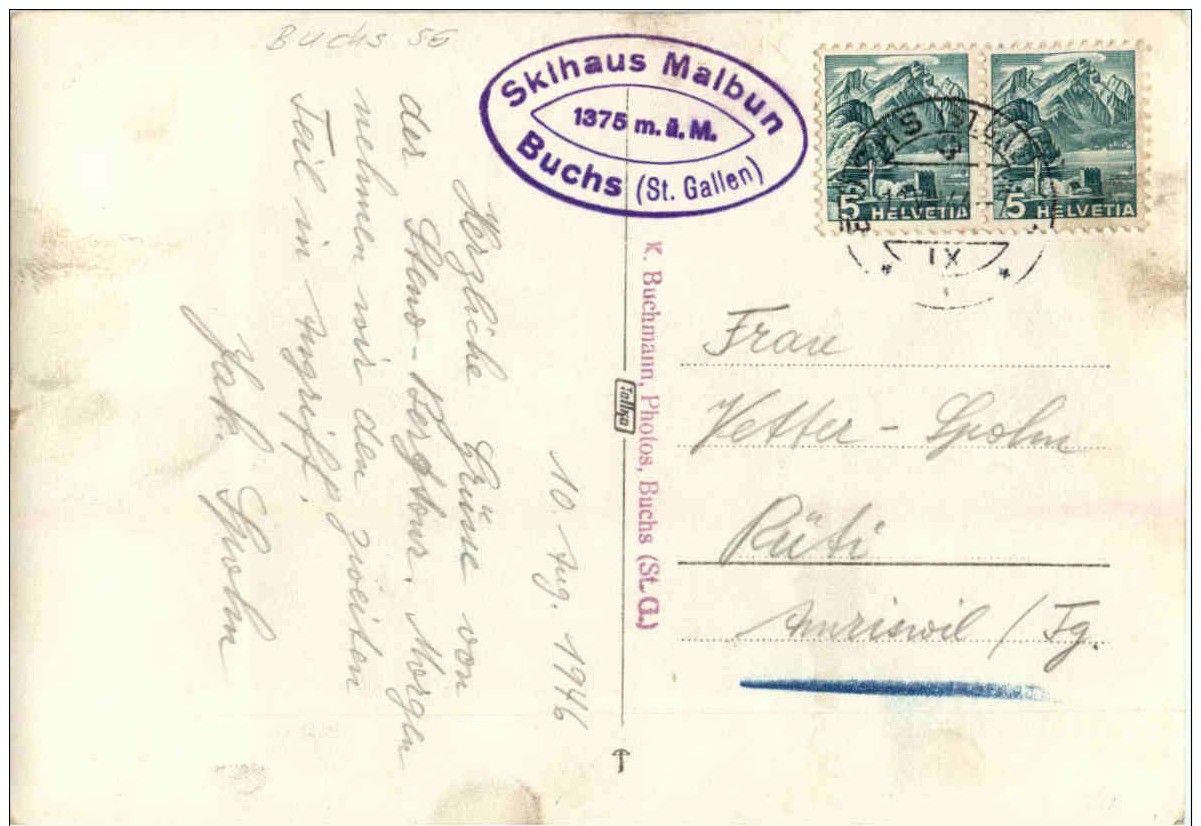 Buchs SG
Skihaus Malbun
1375 m.ü.M.
Buchs (St. Gallen)
5 HELVETIA
5 HELVETIA
IX
10. Aug. 1946
Herzliche Grüsse von
der Steno-Bergtour. Morgen
nehmen wir den zweiten
Teil in Angriff.
Jak. Spohn
K. Buchmann, Photos, Buchs (St. G.)
Frau
Vetter-Spohn
Rüti
Amriswil / Tg.